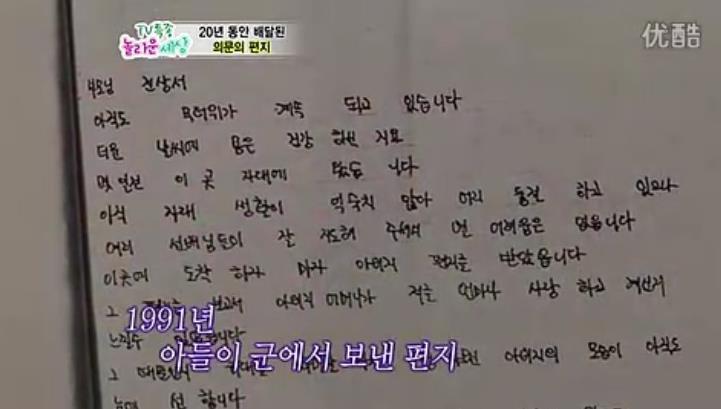 TV특종
놀라운 세상
20년 동안 배달된
의문의 편지
优酷
부모님 전상서
아직도 무더위가 계속 되고 있습니다
더운 날씨에 몸은 건강 하신 지요
몇일전 이 곳 자대에 왔습니다
아직 자대 생활이 익숙치 않아 어리 둥절 하고 있으나
여러 선배님들이 잘 지도해 주셔서 별 어려움은 없읍니다
이곳에 도착 하자 마자 아버지 편지를 받았읍니다
그 보고서 아버지 어머니가 저를 얼마나 사랑 하고 계신지
느낄수
1991년
아들이 군에서 보낸 편지
그 아버지의 모습이 아직도
눈에 선 합니다